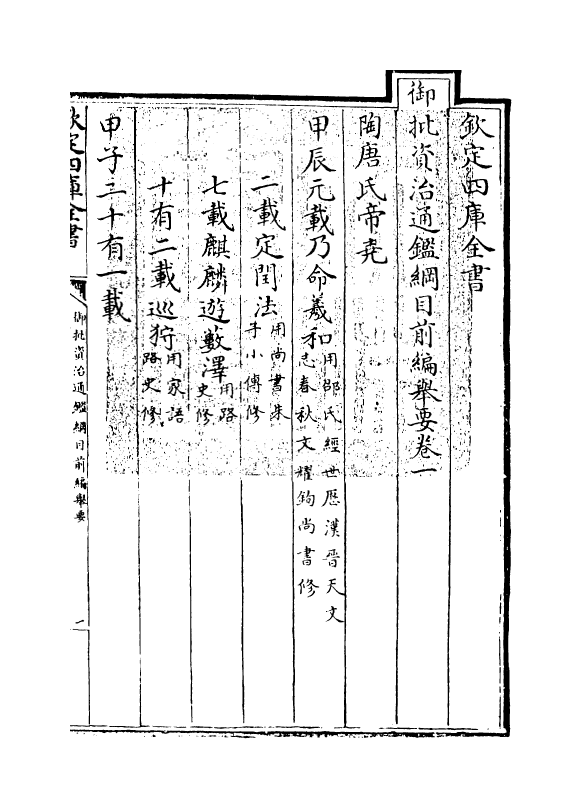 欽定四庫全書
御批資治通鑑綱目前編舉要卷一
陶唐氏帝堯
甲辰元載乃命羲和用邵氏經世厯漢晉天文志春秋文耀鉤尚書修
二載定閏法用尚書朱子小傳修
七載麒麟遊藪澤用路史修
十有二載巡狩用家語路史修
甲子三十有一載
欽定四庫全書
御批資治通鑑綱目前編舉要
一